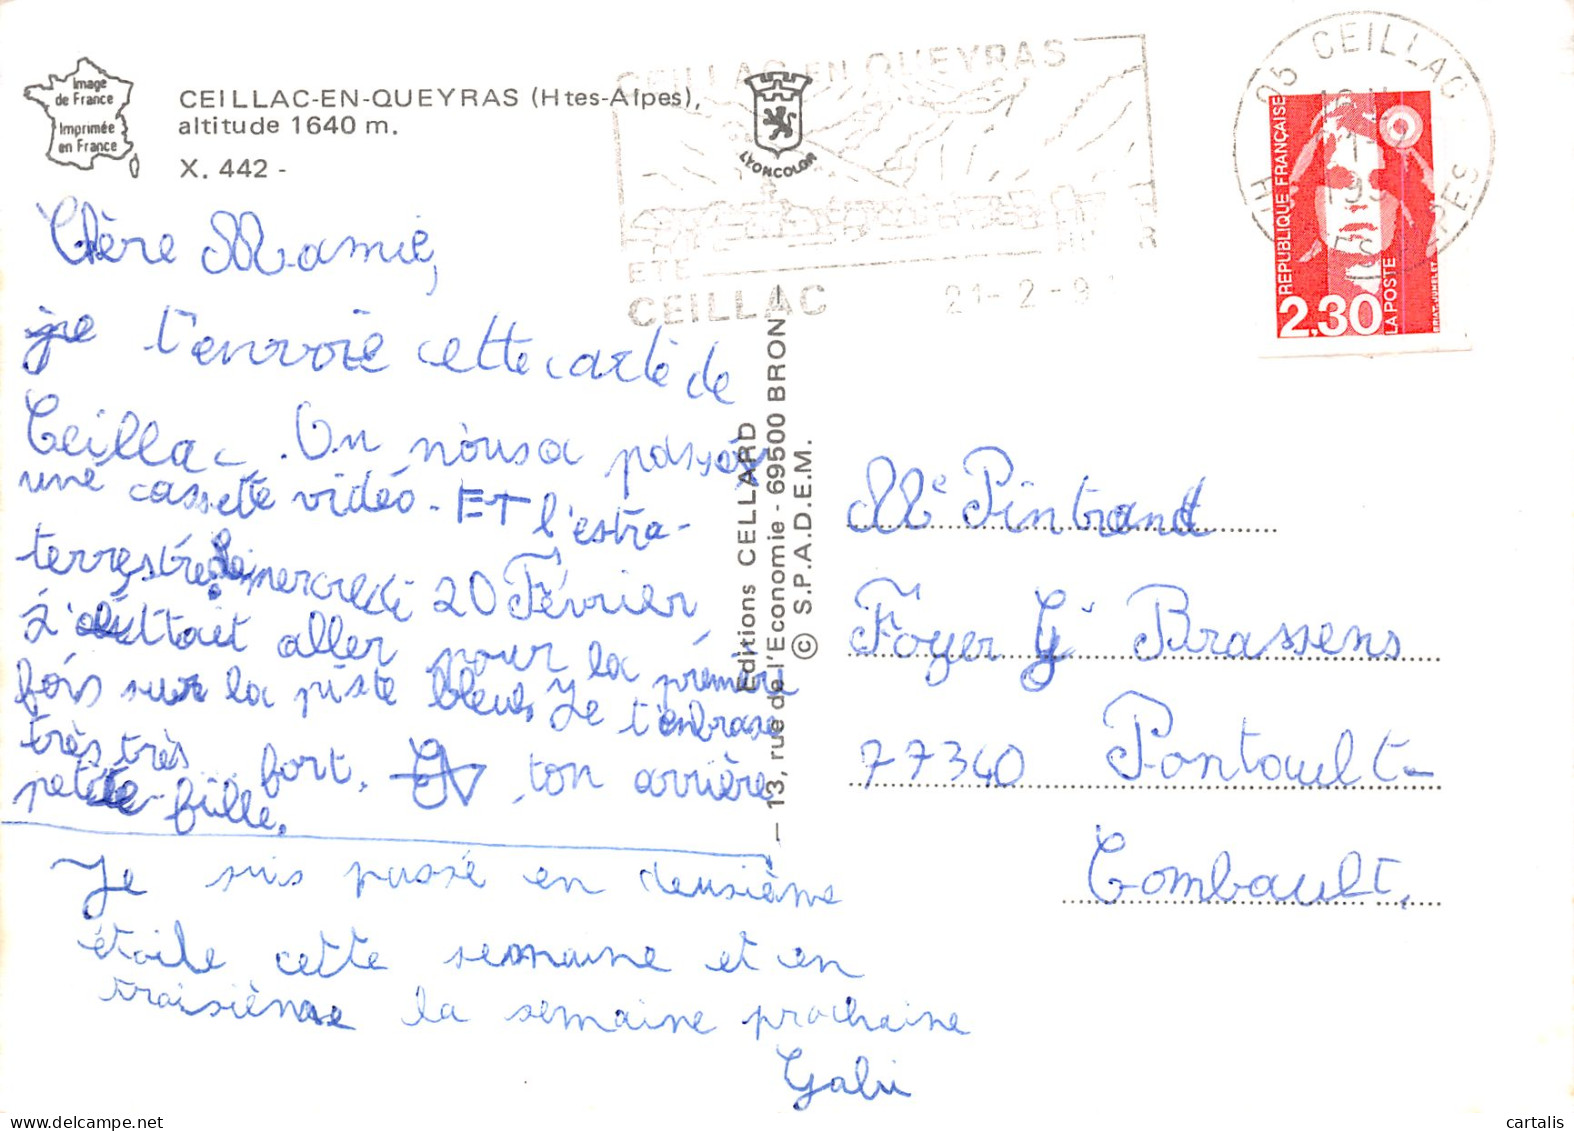 Image
de France
Imprimée
en France
CEILLAC-EN-QUEYRAS (Htes-Alpes),
altitude 1640 m.
X. 442 -
CEILLAC EN QUEYRAS
LYONCOLOR
ETE
CEILLAC
21-2-9
05 CEILLAC
REPUBLIQUE FRANÇAISE
2,30
LA POSTE
Chère Mamie,
je t'envoie cette carte de
Ceillac. On nous a passé
une cassette vidéo - ET l'estra-
terrestre. Le mercredi 20 Février
j'allait aller pour la première
fois sur la piste bleue, Je t'enbrase
très très fort. ton arrière
petite-fille.
Je suis passé en deusième
étoile cette semaine et en
troisième la semaine prochaine
Gabi
Editions CELLARD
— 13, rue de l'Economie - 69500 BRON —
© S.P.A.D.E.M.
Me Pintrand
Foyer G. Brassens
77340 Pontault-
Combault.
cartalis